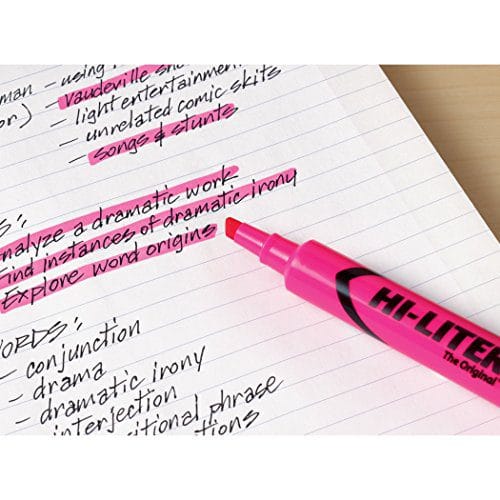 - using
man - vaudeville
or) - light entertainment
- unrelated comic skits
- songs & stunts
S:
nalyze a dramatic work
Find instances of dramatic irony
Explore word origins
ORDS:
- conjunction
- drama
- dramatic irony
interjection
itional phrase
tions
HI-LITER
The Original